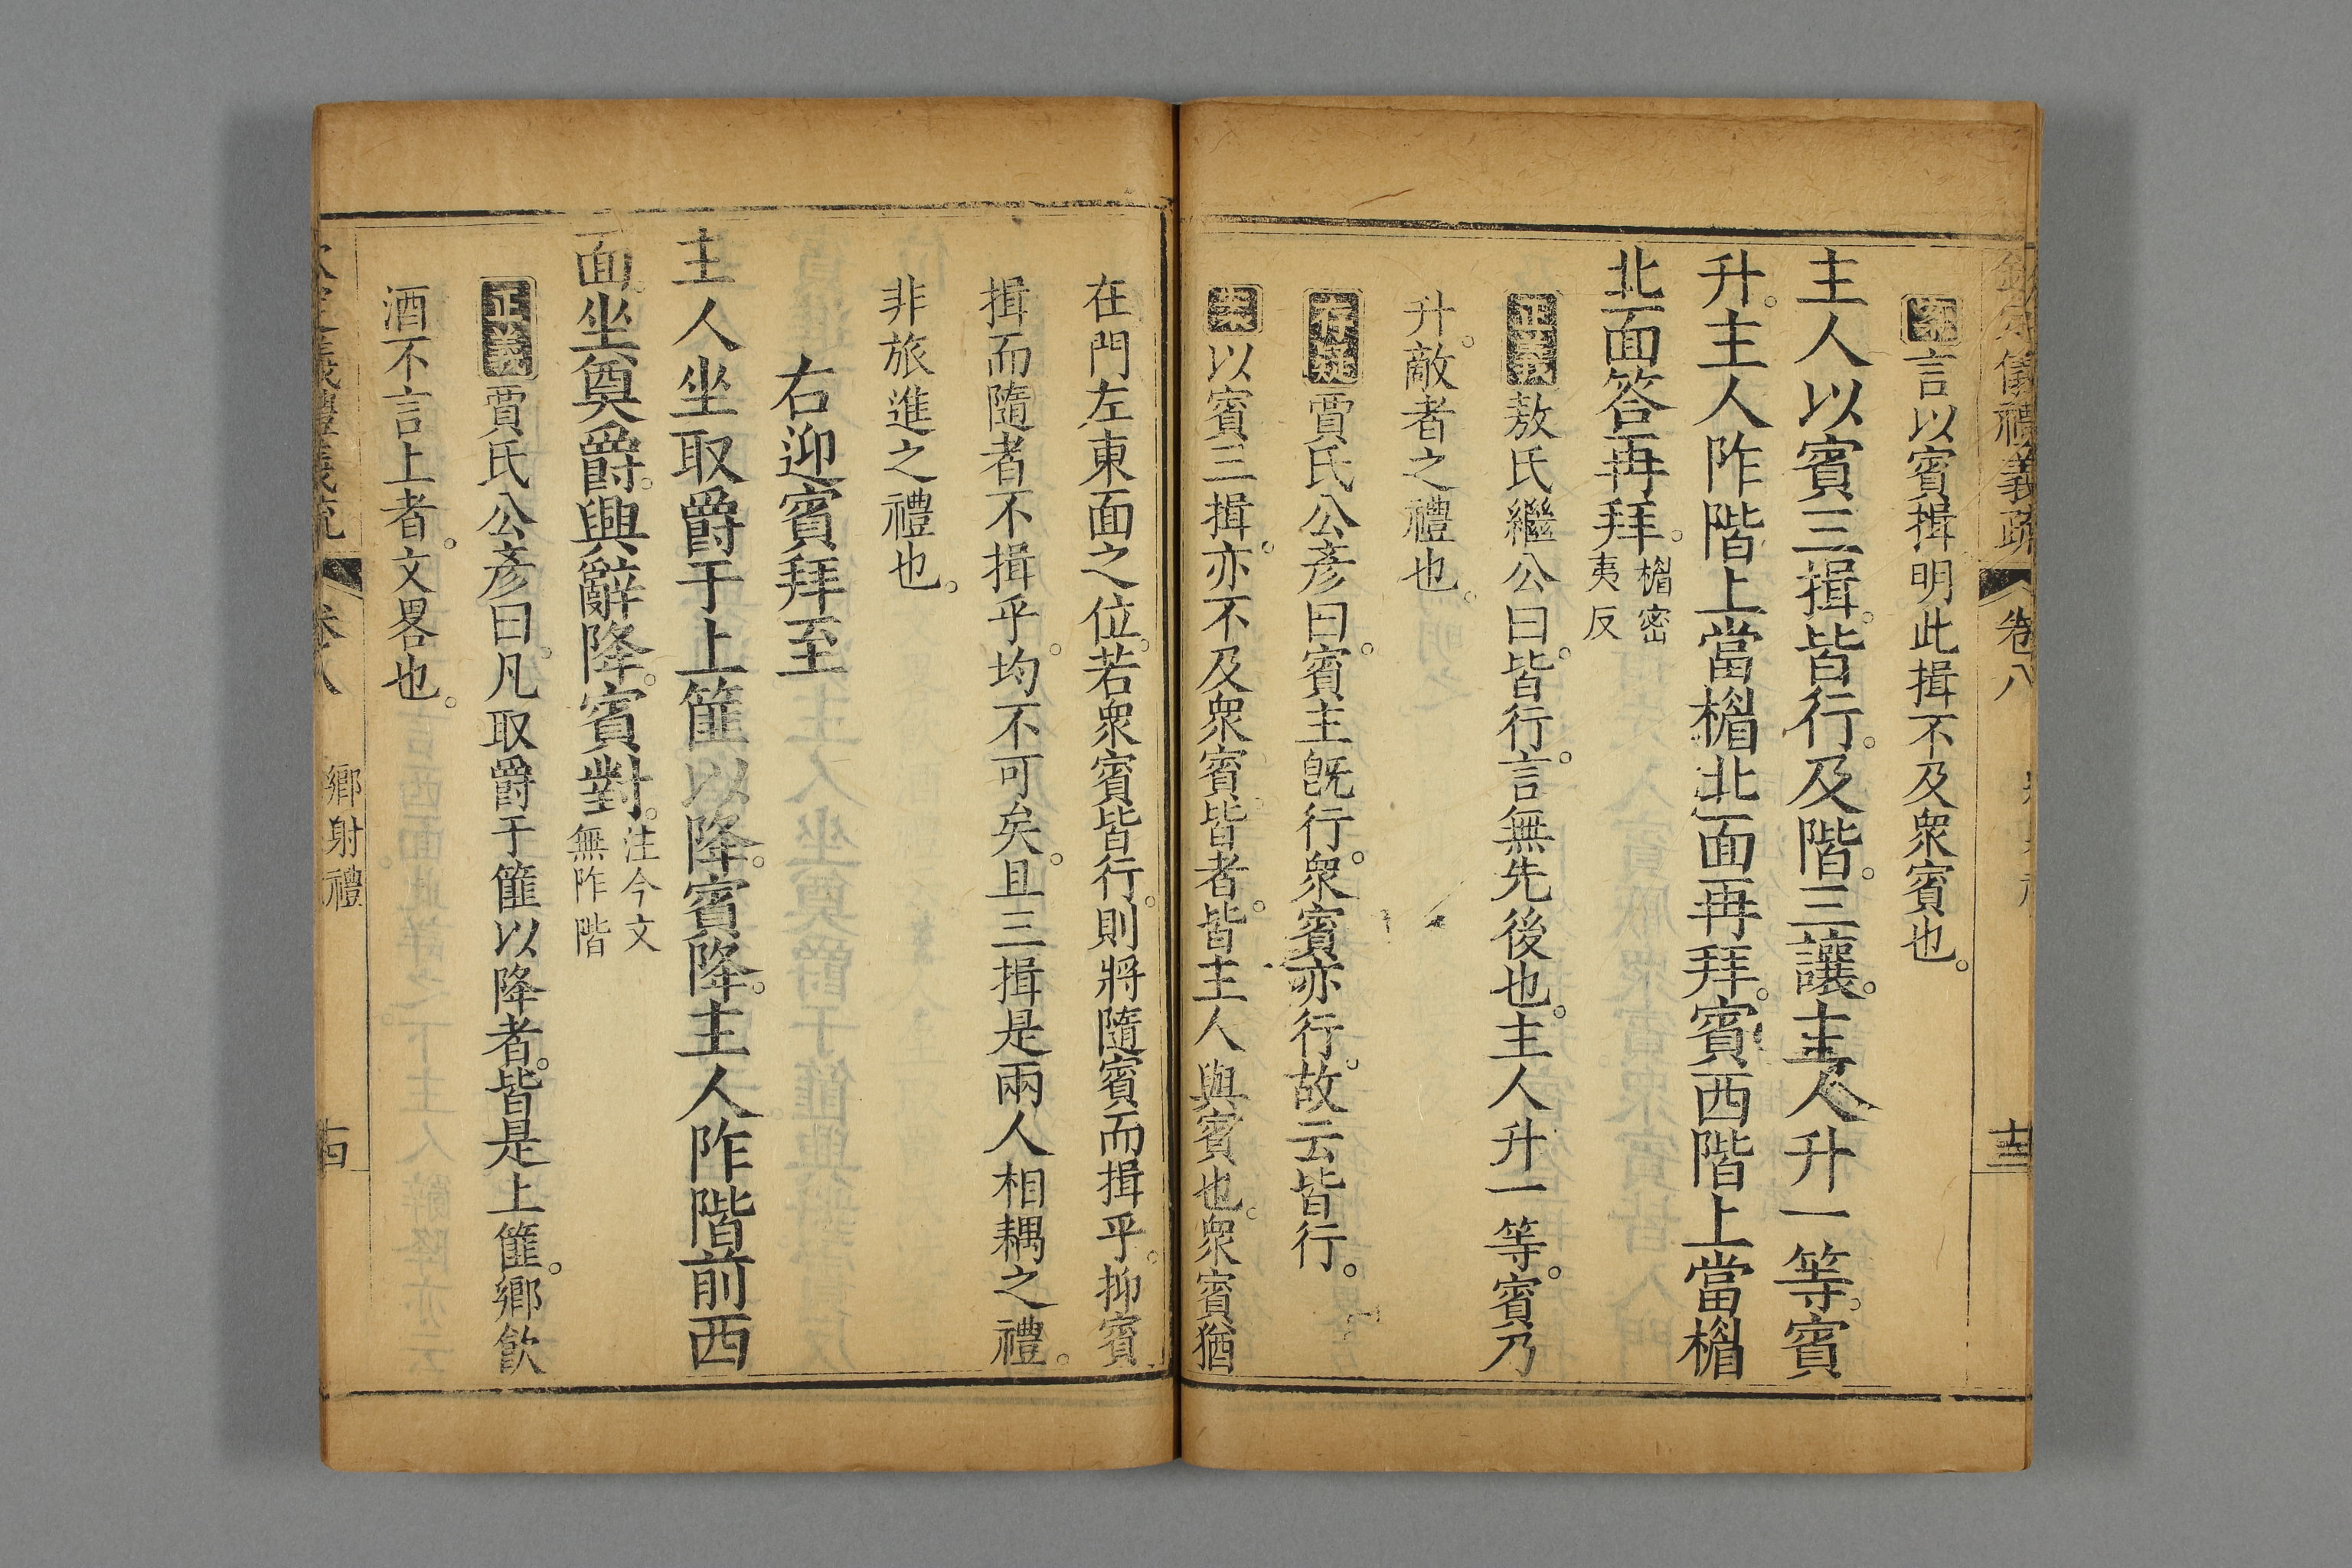 儀禮義疏 卷八 十三
案言以賓揖明此揖不及衆賓也。
主人以賓三揖。皆行。及階。三讓。主人升一等。賓
升。主人阼階上當楣北面再拜。賓西階上當楣
北面答再拜。楣密夷反
正義敖氏繼公曰。皆行。言無先後也。主人升一等。賓乃
升。敵者之禮也。
存疑賈氏公彥曰。賓主旣行。衆賓亦行。故云皆行。
案以賓三揖。亦不及衆賓。皆者。皆主人與賓也。衆賓猶
在門左東面之位。若衆賓皆行。則將隨賓而揖乎。抑賓
揖而隨者不揖乎。均不可矣。且三揖是兩人相耦之禮。
非旅進之禮也。
右迎賓拜至
主人坐取爵于上篚以降。賓降。主人阼階前西
面。坐奠爵。興辭降。賓對。注今文無阼階
正義賈氏公彥曰。凡取爵于篚以降者。皆是上篚。鄉飲
酒不言上者。文畧也。
卷八 鄉射禮 十四